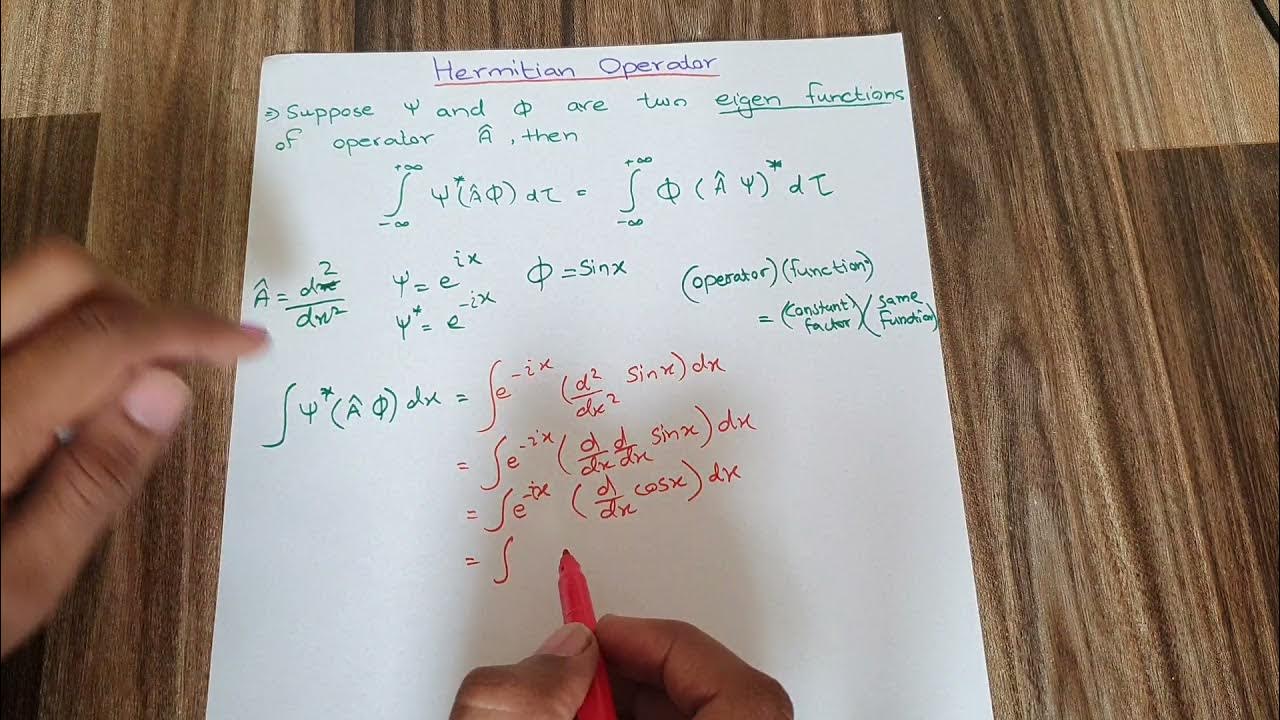 Hermitian Operator
⇒ Suppose Ψ and Φ are two eigen functions
of operator Â, then
∫₋∞⁺∞ Ψ*(ÂΦ) dτ = ∫₋∞⁺∞ Φ (Â Ψ)* dτ
Â = d²/dx² Ψ = e^ix Φ = Sinx (operator)(function)
Ψ* = e^-ix = (constant factor)(same function)
∫Ψ*(Â Φ) dx = ∫e^-ix (d²/dx² Sinx) dx
= ∫e^-ix (d/dx d/dx sinx) dx
= ∫e^-ix (d/dx cosx) dx
= ∫